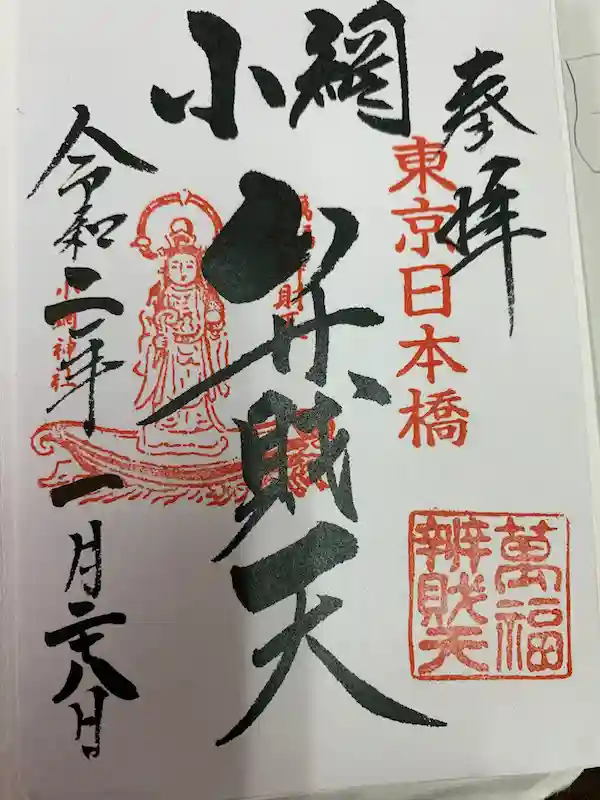 奉拝
東京日本橋
萬福
辨財天
小網
弁財天
小網神社
令和二年一月二十八日